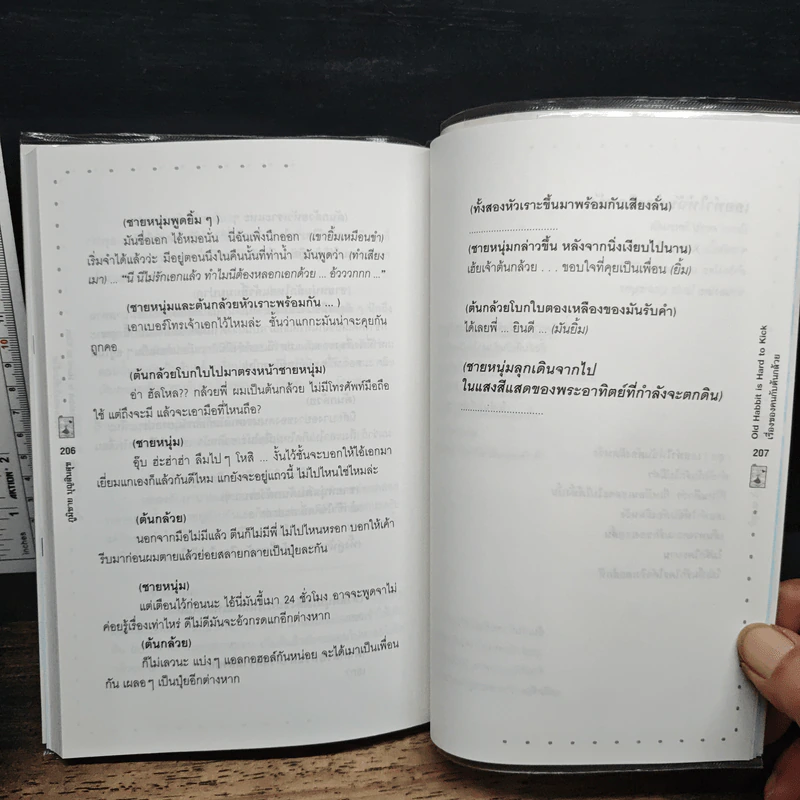 (ชายหนุ่มพูดยิ้ม ๆ )
มันชื่อเอก ไอ้หมอนั่น นี่ฉันเพิ่งนึกออก (เขายิ้มเหมือนขำ)
เริ่มจำได้แล้วว่ะ มีอยู่ตอนนึงในคืนนั้นที่ทำน้ำ มันพูดว่า (ทำเสียง
เมา) ... "นี่ นี่ไม่รักเอกแล้ว ทำไมนี่ต้องหลอกเอกด้วย ... อ้วววกกก ..."
(ชายหนุ่มและต้นกล้วยหัวเราะพร้อมกัน ... )
เอาเบอร์โทรเจ้าเอกไว้ไหมล่ะ ชั้นว่าแกกะมันน่าจะคุยกัน
ถูกคอ
(ต้นกล้วยโบกใบไปมาตรงหน้าชายหนุ่ม)
อ่า ฮัลโหล?? กล้วยพี่ ผมเป็นต้นกล้วย ไม่มีโทรศัพท์มือถือ
ใช้ แต่ถึงจะมี แล้วจะเอามือที่ไหนถือ?
(ชายหนุ่ม)
อุ๊บ ฮ่ะฮ่าฮ่า ลืมไป ๆ โหสิ ... งั้นไว้ชั้นจะบอกให้ไอ้เอกมา
เยี่ยมแกเองก็แล้วกันดีไหม แกยังจะอยู่แถวนี้ ไม่ไปไหนใช่ไหมล่ะ
(ต้นกล้วย)
นอกจากมือไม่มีแล้ว ตีนก็ไม่มีพี่ ไม่ไปไหนหรอก บอกให้เค้า
รีบมาก่อนผมตายแล้วย่อยสลายกลายเป็นปุ๋ยละกัน
(ชายหนุ่ม)
แต่เตือนไว้ก่อนนะ ไอ้นี่มันขี้เมา 24 ชั่วโมง อาจจะพูดจาไม่
ค่อยรู้เรื่องเท่าไหร่ ดีไม่ดีมันจะอ้วกรดแกอีกต่างหาก
(ต้นกล้วย)
ก็ไม่เลวนะ แบ่ง ๆ แอลกอฮอล์กันหน่อย จะได้เมาเป็นเพื่อน
กัน เผลอ ๆ เป็นปุ๋ยอีกต่างหาก
206
(ทั้งสองหัวเราะขึ้นมาพร้อมกันเสียงลั่น)
..............................
(ชายหนุ่มกล่าวขึ้น หลังจากนิ่งเงียบไปนาน)
เฮ้ยเจ้าต้นกล้วย . . . ขอบใจที่คุยเป็นเพื่อน (ยิ้ม)
(ต้นกล้วยโบกใบตองเหลืองของมันรับคำ)
ได้เลยพี่ ... ยินดี ... (มันยิ้ม)
(ชายหนุ่มลุกเดินจากไป
ในแสงสีแสดของพระอาทิตย์ที่กำลังจะตกดิน)
..............................
Old Habbit is Hard to Kick
เรื่องของคนกับต้นกล้วย
207